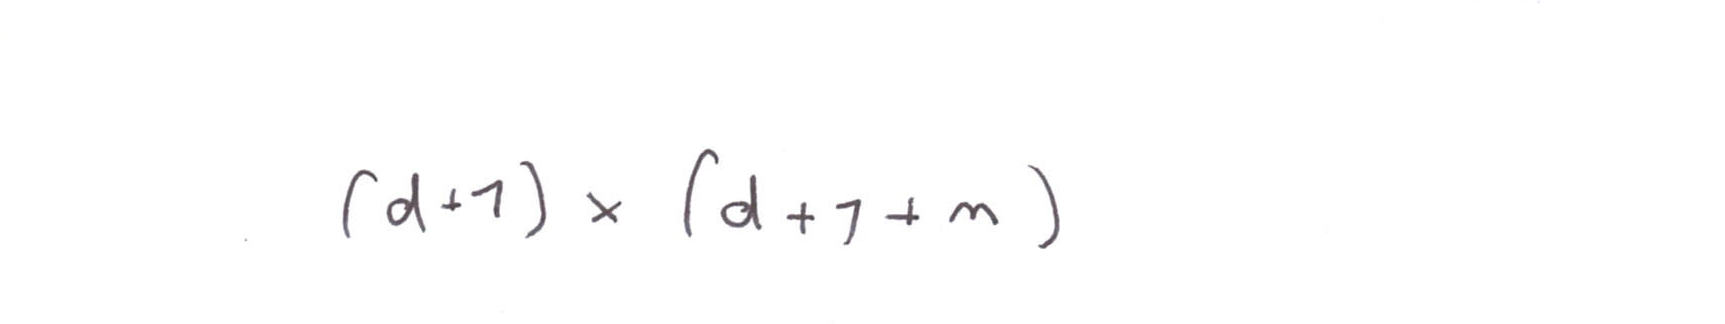 (d+1) × (d+1+m)